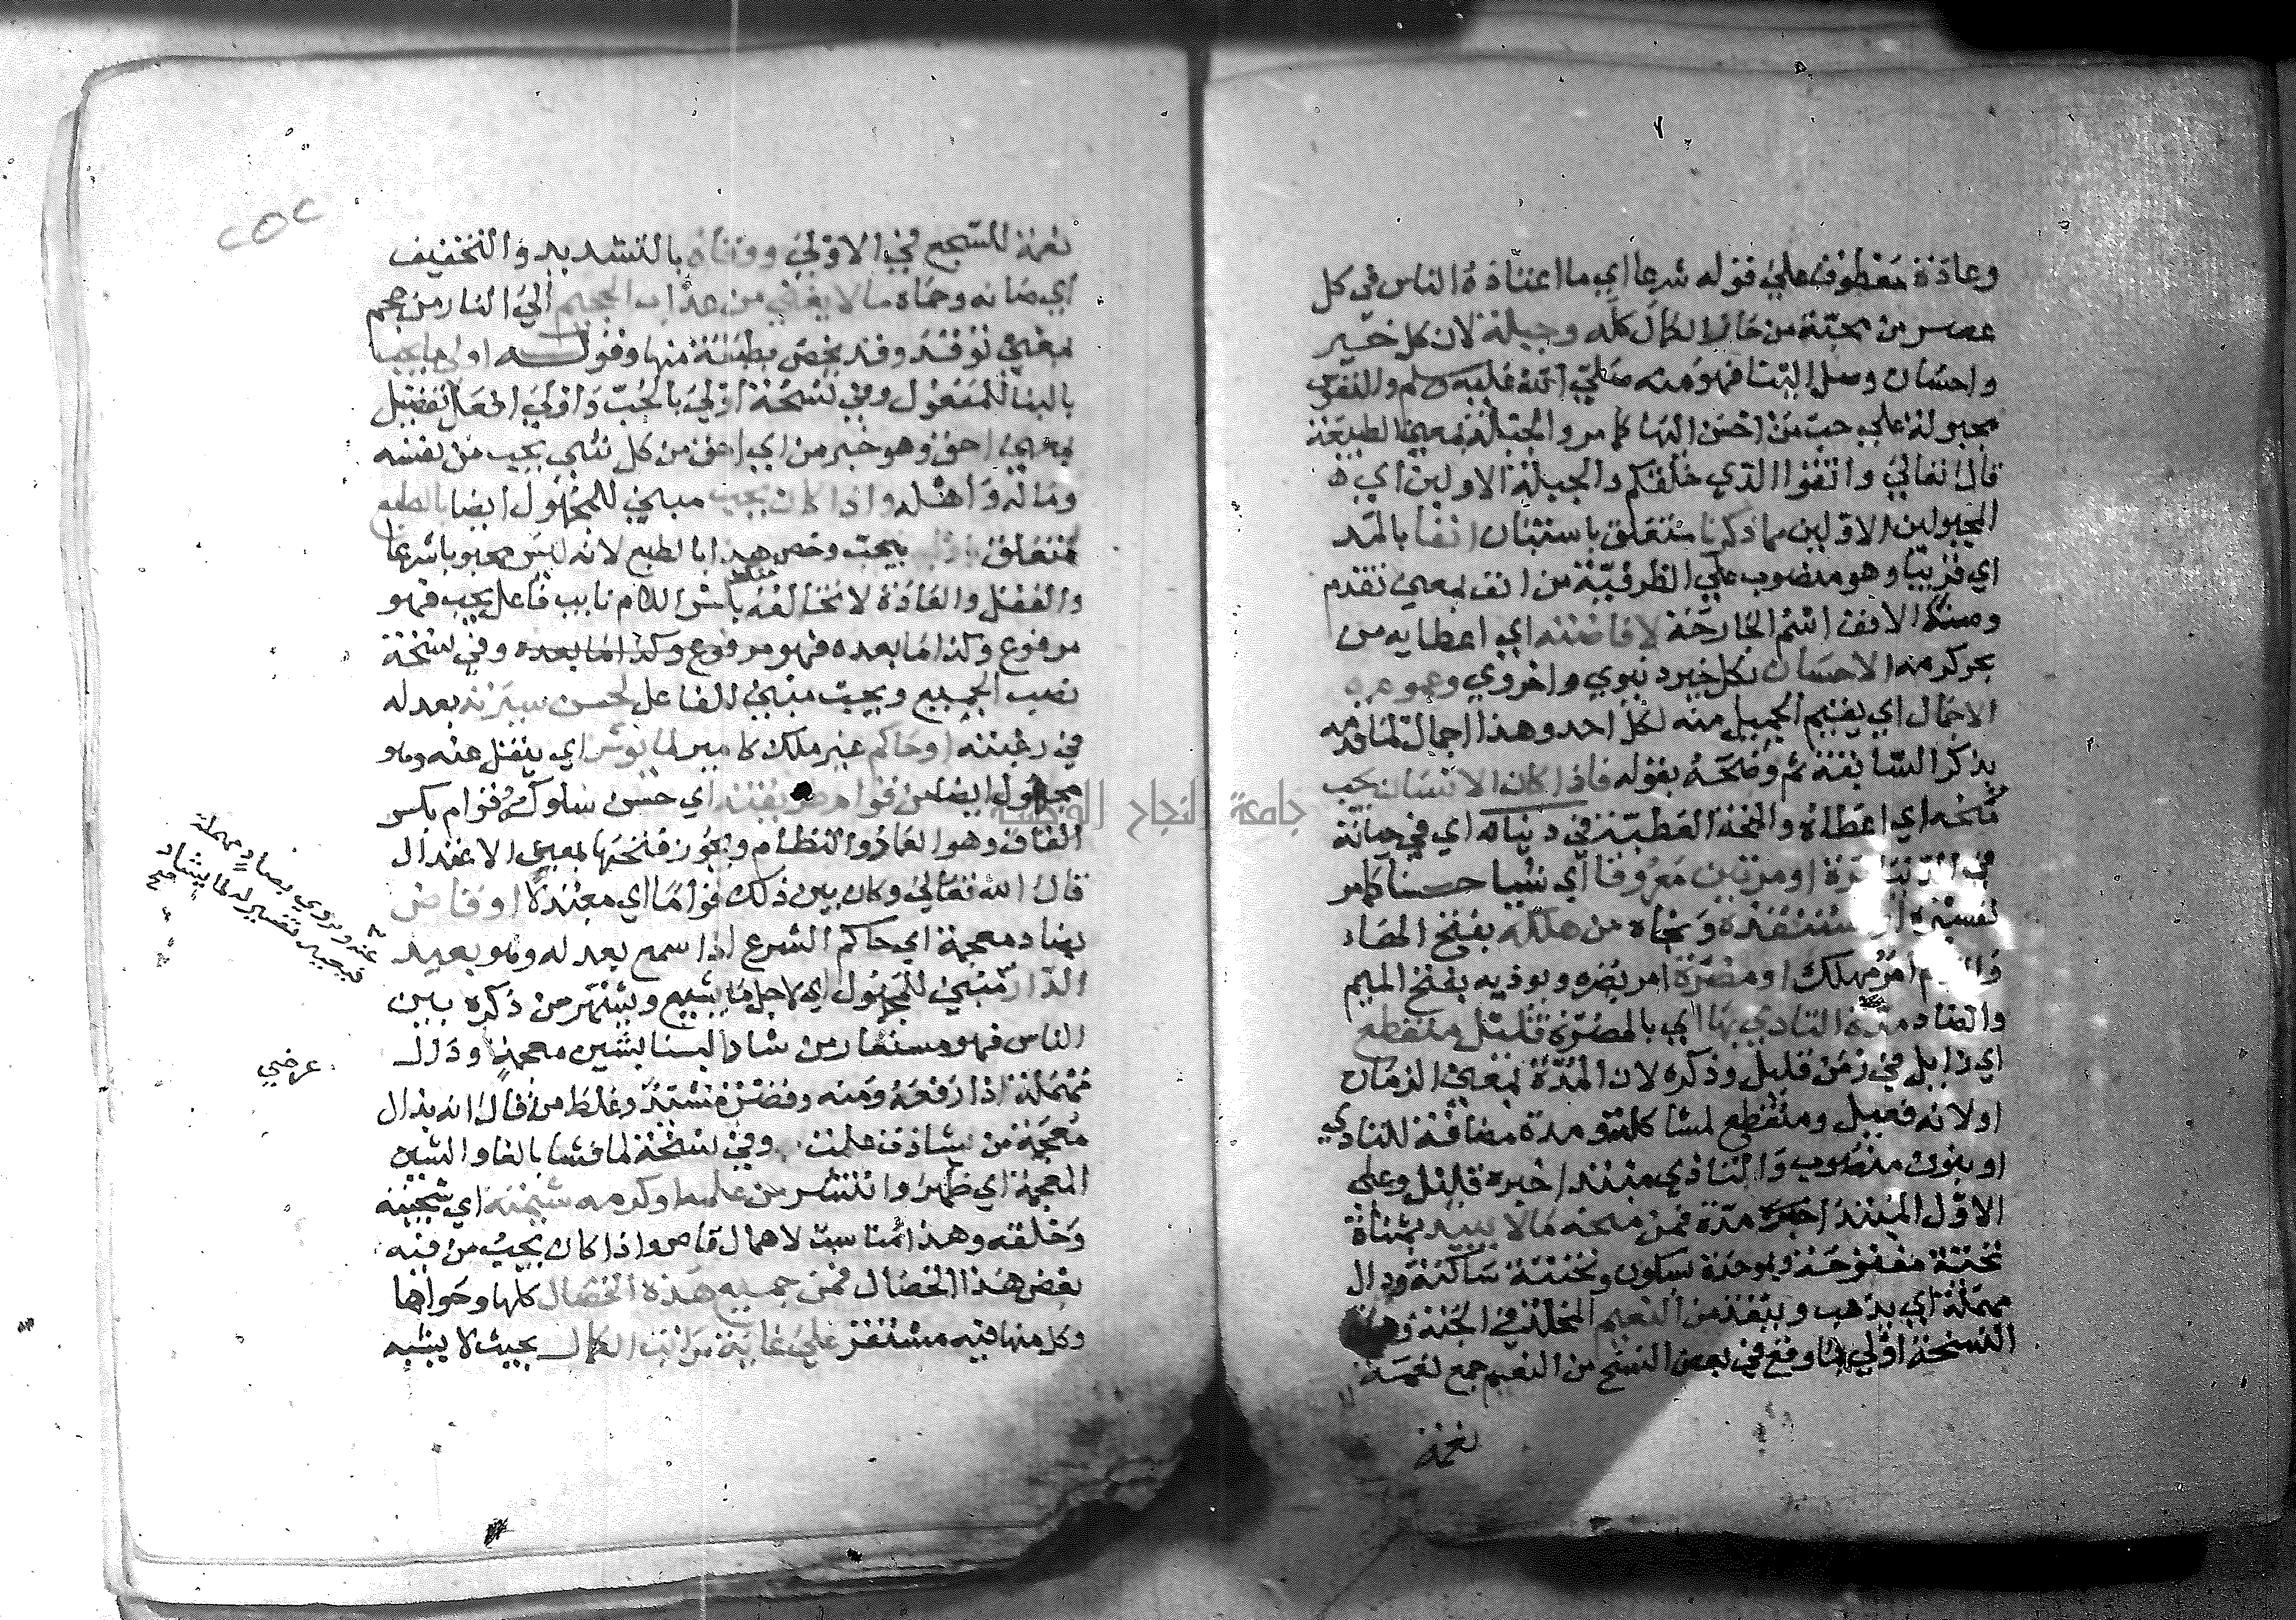 وعادة معطوف علي قوله شرعا اي ما اعتاده الناس في كل
عصر من محبة من حاز الكمال كله وجبلة لان كل خير
واحسان وصل الينا فهو منه صلي الله عليه وسلم والنفوس
مجبولة علي حب من احسن اليها كما مر والجبلة بمعني الطبيعة
قال تعالي واتقوا الذي خلقكم والجبلة الاولين اي
المجبولين الاولين مما ذكرنا متعلق باستثبات انفا بالمد
اي قريبا وهو منصوب علي الظرفية من انف بمعني تقدم
ومنه الانف اسم الجارحة لافاضته اي اعطايه من
بحر كرمه الاحسان بكل خير دنيوي واخروي وعمومه
الاجمال اي يفهم الجميل منه لكل احد وهذا اجمال لما قدمه
بذكر السابقة ثم وضحه بقوله فاذا كان الانسان يحب
منحه اي اعطاه والمنحة العطية في دنياه اي في حياته
في الدنيا مرة او مرتين معروفا اي شيا حسنا كما مر
تفسيره او استنقذه ونجاه من هلكة بفتح الهاء
واللام امر مهلك او مضرة امر يضره ويوذيه بفتح الميم
والضاد مدة التاذي بها اي بالمضرة قليل منقطع
اي زايل في زمن قليل وذكره لان المدة بمعني الزمان
او لانه فعيل ومنقطع لمشاكلته ومدة مضافة للتاذي
او بنون منصوب والتاذي مبتدا خبره قليل وعلي
الاول المبتدا مدة فمن منحه مالا يبيد بمثناة
تحتية مفتوحة وموحدة بسكون وتحتية ساكنة ودال
مهملة اي يذهب وينفد من النعيم المخلد في الجنة وهذه
النسخة اولي مما وقع في بعض النسخ من النعيم جمع نعمة
نعمة
٢٥٢
نعمة للسجع في الاولي ووقاه بالتشديد والتخفيف
اي صانه وحماه ما لا يفني من عذاب الجحيم الي النار من جحم
بمعني توقد وقد يخص بطبقة منها وقوله اولي ما يحب
بالبنا للمفعول وفي نسخة اولي بالحب واولي افعل تفضيل
بمعني احق وهو خبر من اي احق من كل شي يحب من نفسه
وماله واهله واذا كان يحب مبني للمجهول ايضا بالطبع
متعلق بيحب وخص هذا بالطبع لانه ليس محبوبا شرعا
والعقل والعادة لا تخالفه ملك باشر اللام نايب فاعل يحب فهو
مرفوع وكذا ما بعده فهو مرفوع وكذا ما بعده وفي نسخة
نصب الجميع ويحب مبني للفاعل لحسن سيرته بعدله
في رعيته او حاكم غير ملك كامير لما يوثر اي ينقل عنه وهو
مجهول ايضا من قوام طريقته اي حسن سلوكه وقوام بكسر
القاف وهو العماد والنظام ويجوز فتحها بمعني الاعتدال
قال الله تعالي وكان بين ذلك قواما اي معتدلا او قاض
بضاد معجمة اي حاكم الشرع اذا سمع بعدله وهو بعيد
الدار مبني للمجهول اي لاجل ما يشيع ويشتهر من ذكره بين
الناس فهو مستعار من شاد البنا بشين معجمة ودال
مهملة اذا رفعه ومنه وقصر مشيد وغلط من قال انه بذال
معجمة من يشاذ ف علمت وفي نسخة لما فشا بالفا والشين
المعجمة اي ظهر وانتشر من علمه او كرم شيمته اي سجيته
وخلقه وهذا مناسب لاهمال قاص واذا كان يحب من فيه
بعض هذا الخصال فمن جميع هذه الخصال كلها وحواها
وكل منها فيه مستقر علي غاية مراتب الكمال بحيث لا يشبه
عنه ويروي بصاد مهملة
عرضي
جامعة النجاح الوطنية